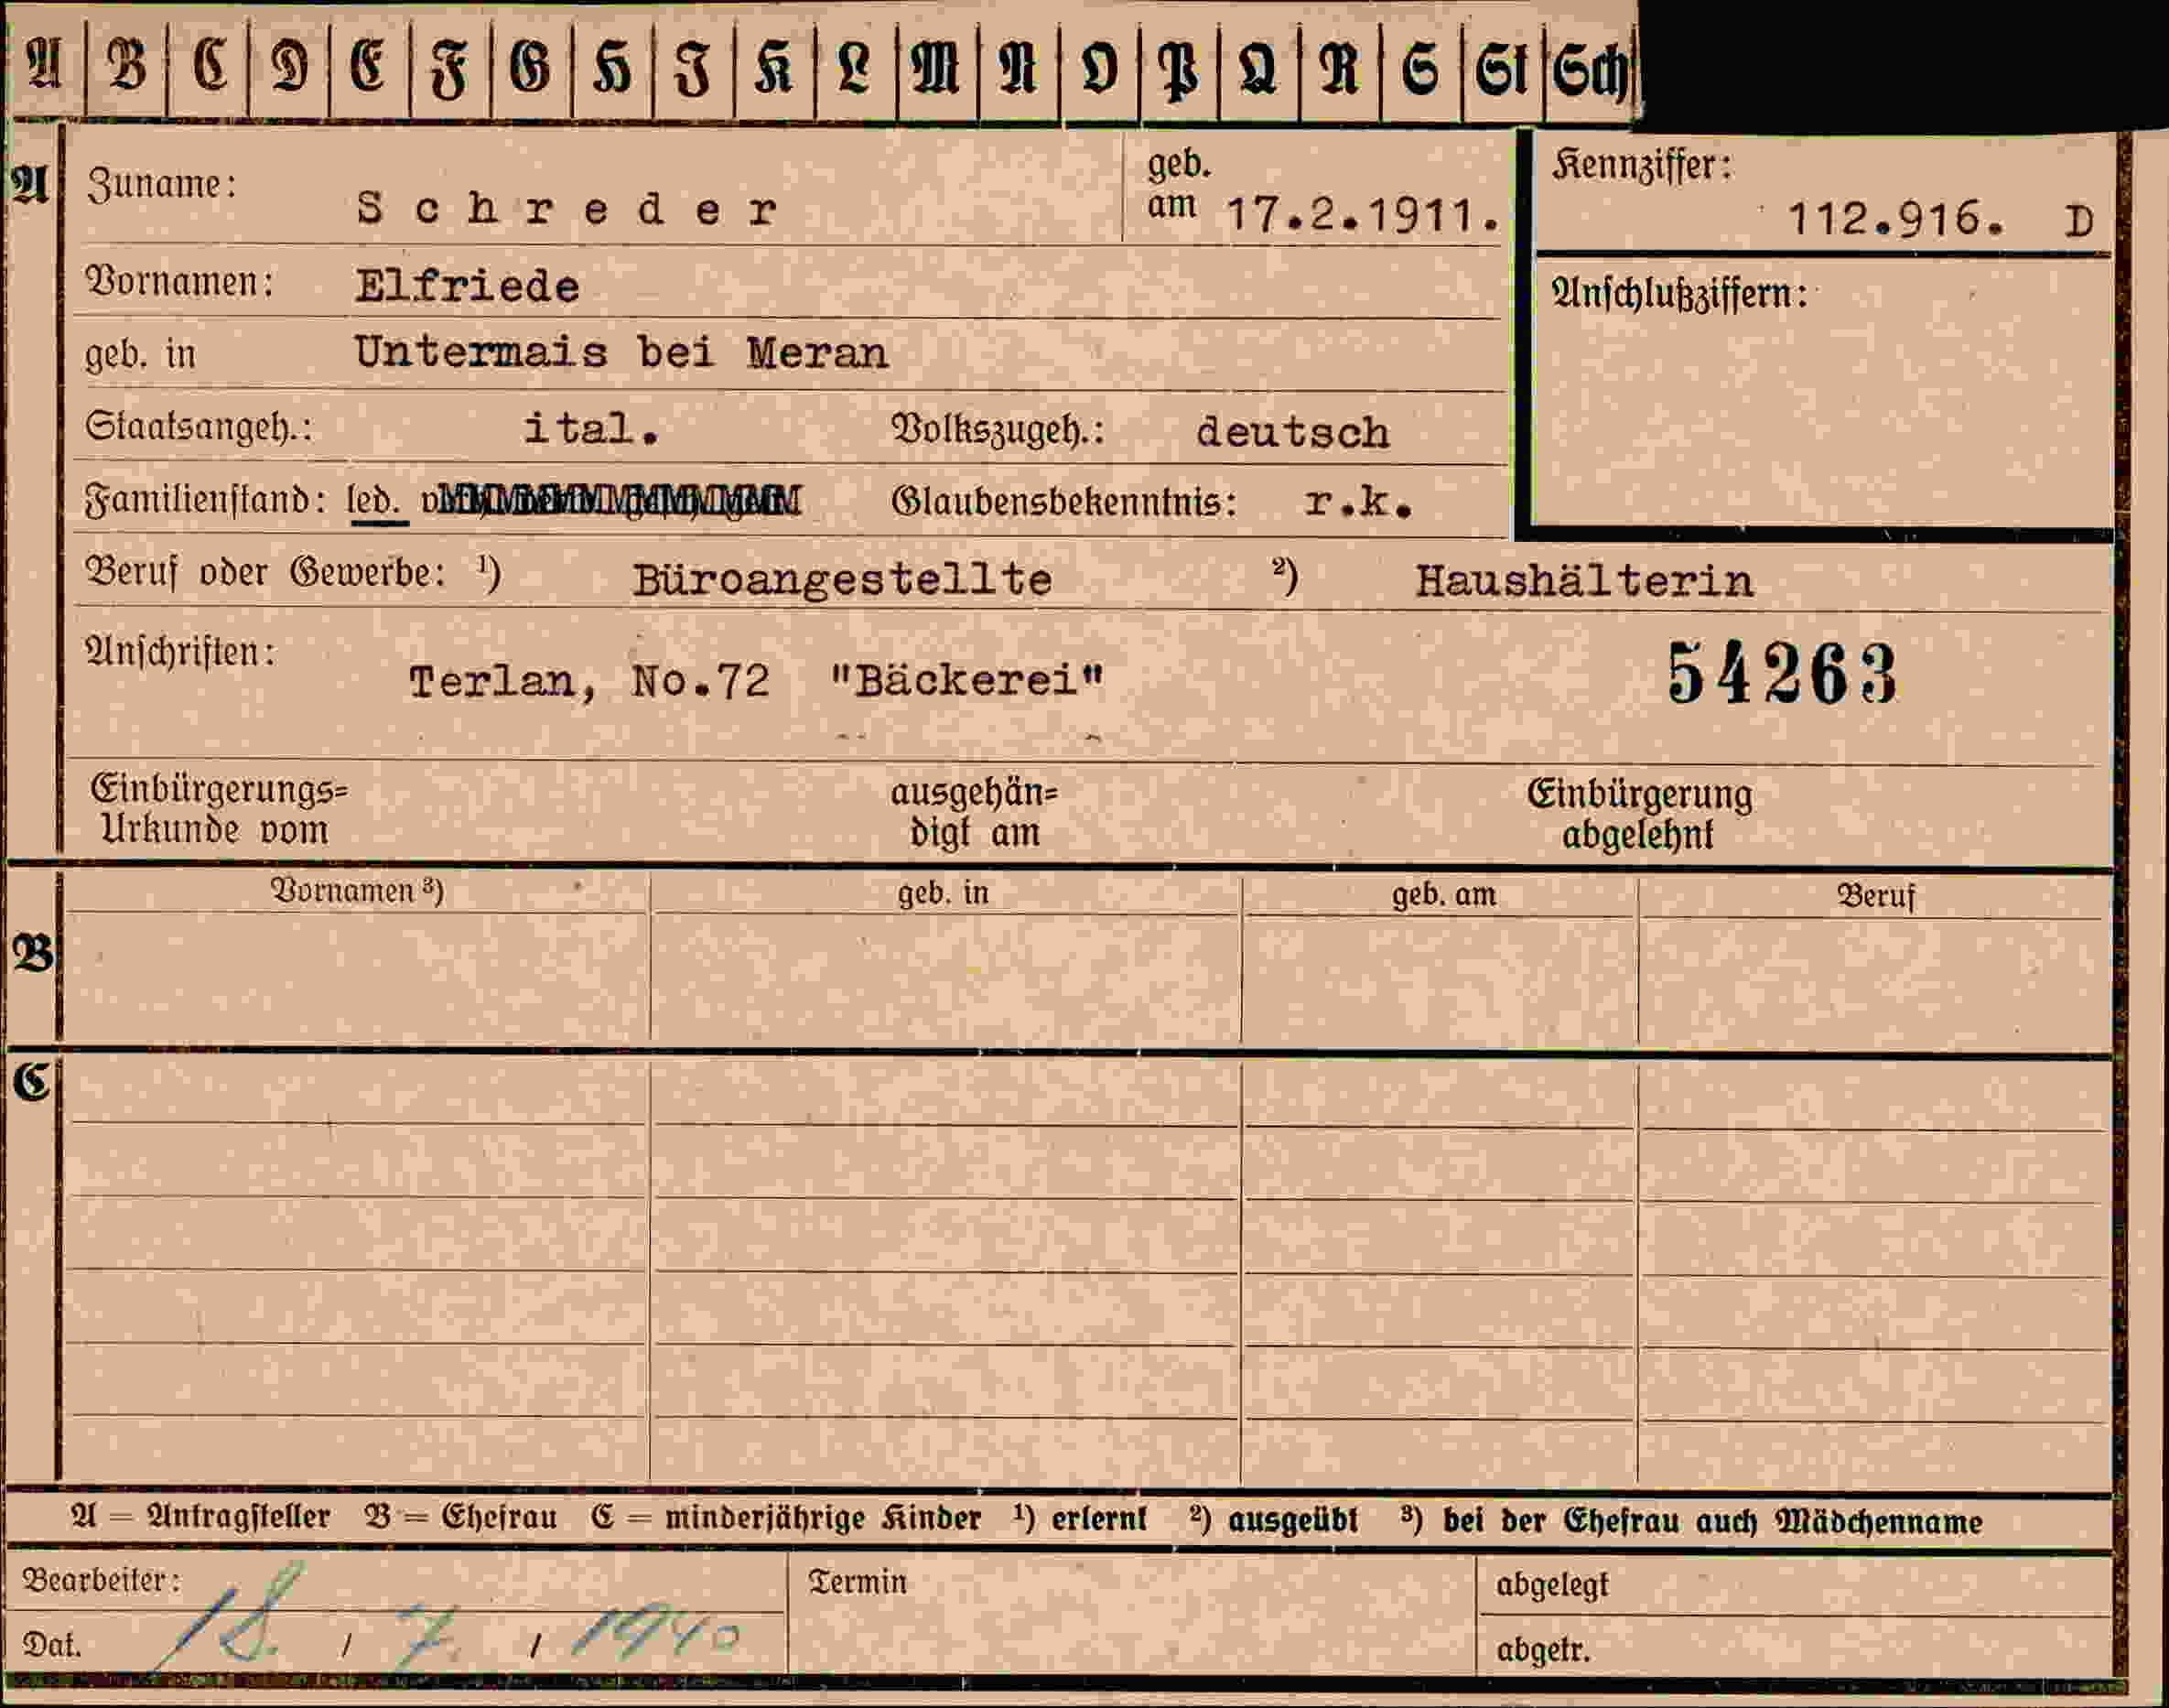 A B C D E F G H J K L M N O P Q R S St Sch
A
Zuname: Schreder geb. am 17.2.1911.
Kennziffer: 112.916. D
Vornamen: Elfriede
Anschlußziffern:
geb. in Untermais bei Meran
Staatsangeh.: ital. Volkszugeh.: deutsch
Familienstand: led. Glaubensbekenntnis: r.k.
Beruf oder Gewerbe: ¹) Büroangestellte ²) Haushälterin
Anschriften: Terlan, No.72 "Bäckerei" 54263
Einbürgerungs= ausgehän= Einbürgerung
Urkunde vom digt am abgelehnt
B
Vornamen ³) geb. in geb. am Beruf
C
A = Antragsteller B = Ehefrau C = minderjährige Kinder ¹) erlernt ²) ausgeübt ³) bei der Ehefrau auch Mädchenname
Bearbeiter: Termin abgelegt
Dat. 18. / 7. / 1940 abgetr.